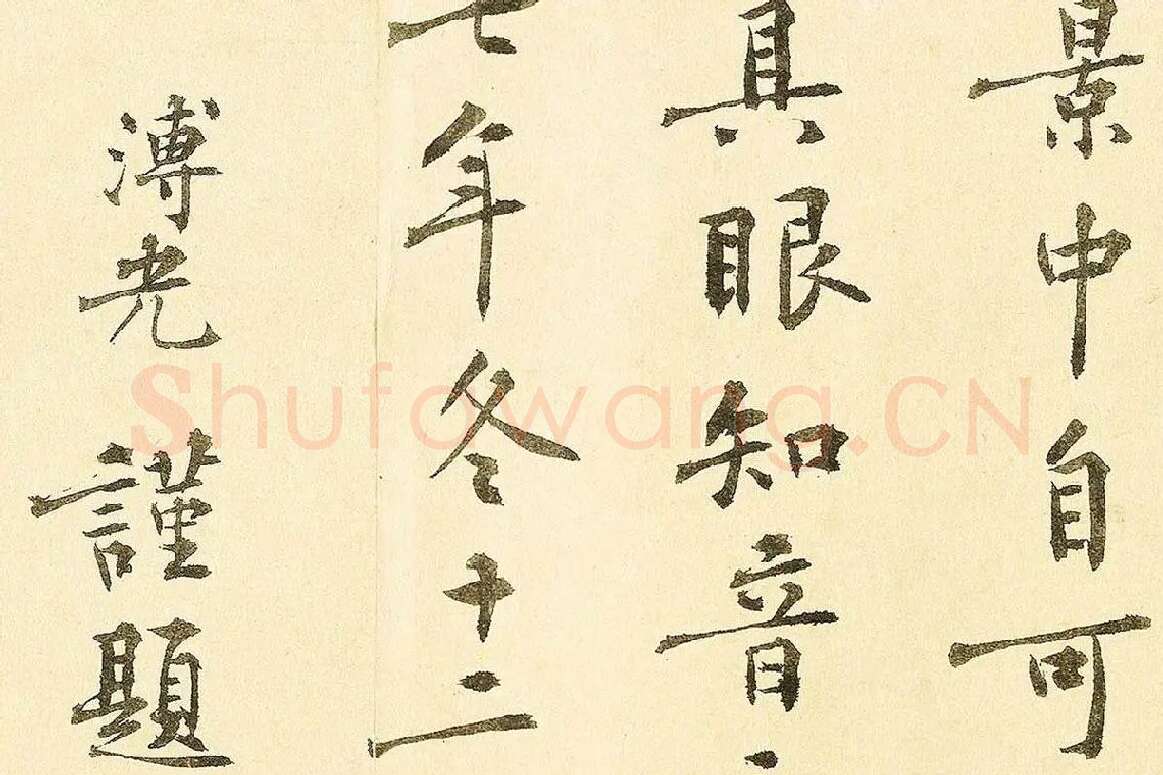 景中自可
具眼知音
七年冬十二
溥光謹題
Shufawang.CN